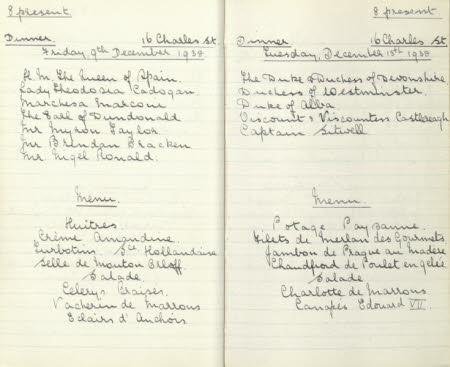 8 present
Dinner. 16 Charles St.
Friday, 9th December 1938
H. M. The Queen of Spain.
Lady Theodosia Cadogan.
Marchesa Marconi
The Earl of Dundonald
Mr Myron Taylor
Mr Brendan Bracken
Mr. Nigel Ronald.
Menu.
Huitres.
Crème Amandine.
Turbotin Sce Hollandaise
Selle de Mouton Orloff
Salade
Celerys Braises.
Vacherin de Marrons
Eclairs d'Anchois
8 present.
Dinner 16 Charles St.
Tuesday, December 13th 1938
The Duke & Duchess of Devonshire
Duchess of Westminster.
Duke of Alba.
Viscount & Viscountess Castlereagh
Captain Sitwell
Menu.
Potage Paysanne.
Filets de Merlan des Gourmets
Jambon de Prague au Madère
Chaudfroid de Poulet en gelée
Salade
Charlotte de Marrons
Canapés Edouard VII.